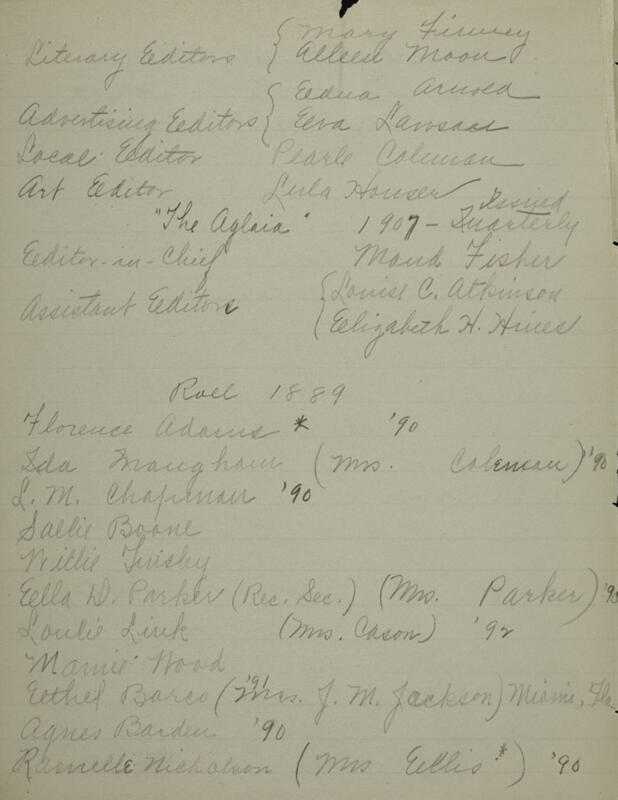 Literary Editors { Mary Finney
Alleen Moon
Advertising Editors { Edna Arnold
Eva Lawson
Local Editor Pearle Coleman
Art Editor Lula Houser
"The Aglaia" 1907 - Issued Quarterly
Editor-in-Chief Maud Fisher
Assistant Editors { Louise C. Atkinson
Elizabeth H. Hines
Roll 1889
Florence Adams * '90
Ida Mangham (Mrs. Coleman) '90
L. M. Chapman '90
Sallie Boone
Willie Tinsley
Ella D. Parker (Rec. Sec.) (Mrs. Parker) '90
Loulie Link (Mrs. Cason) '92
Mamie Wood
Ethel Barco '91 (Mrs. J. M. Jackson) Miami, Fla
Agnes Barden '90
Ramelle Nicholson (Mrs Ellis *) '90